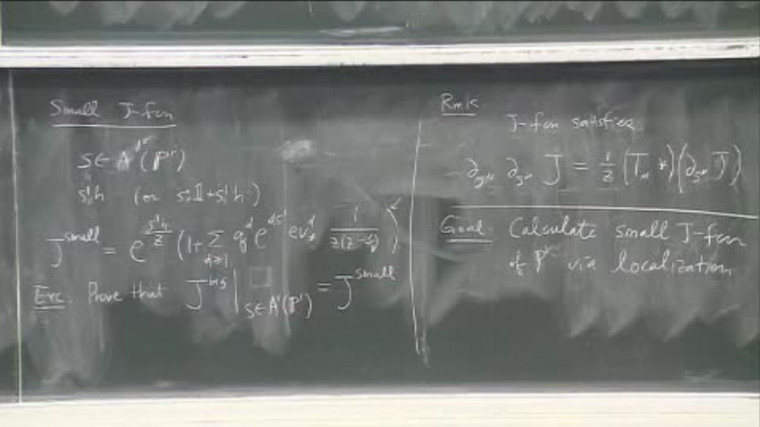 Small J-fcn
S ∈ A^1(P^r)
s^1h (or s^0 1 + s^1 h)
J^small = e^{s^1h/z} (1 + Σ_{d≥1} q^d e^{ds^1} ev_*^d 1/(z(z-ψ)))
Exc. Prove that J^big |_{S∈A^1(P^r)} = J^small
Rmk
J-fcn satisfies
J = 1/z (T_α *)
Goal: Calculate small J-fcn
of P^r via localization